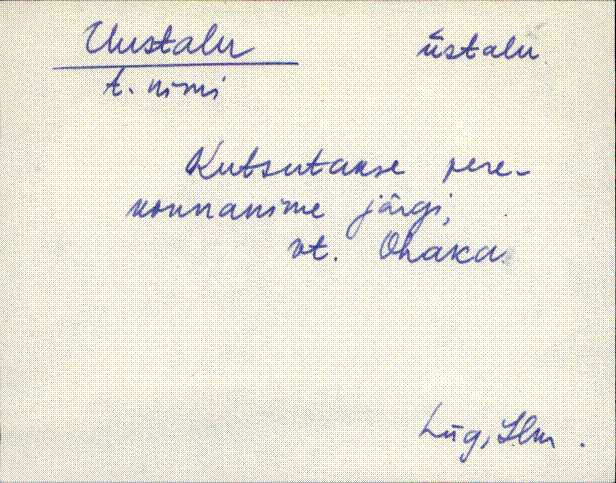 Uustalu ūstalu
t. nimi
Kutsutakse pere-
konnanime järgi,
vt. Ohaka
Lüg, Ilm.